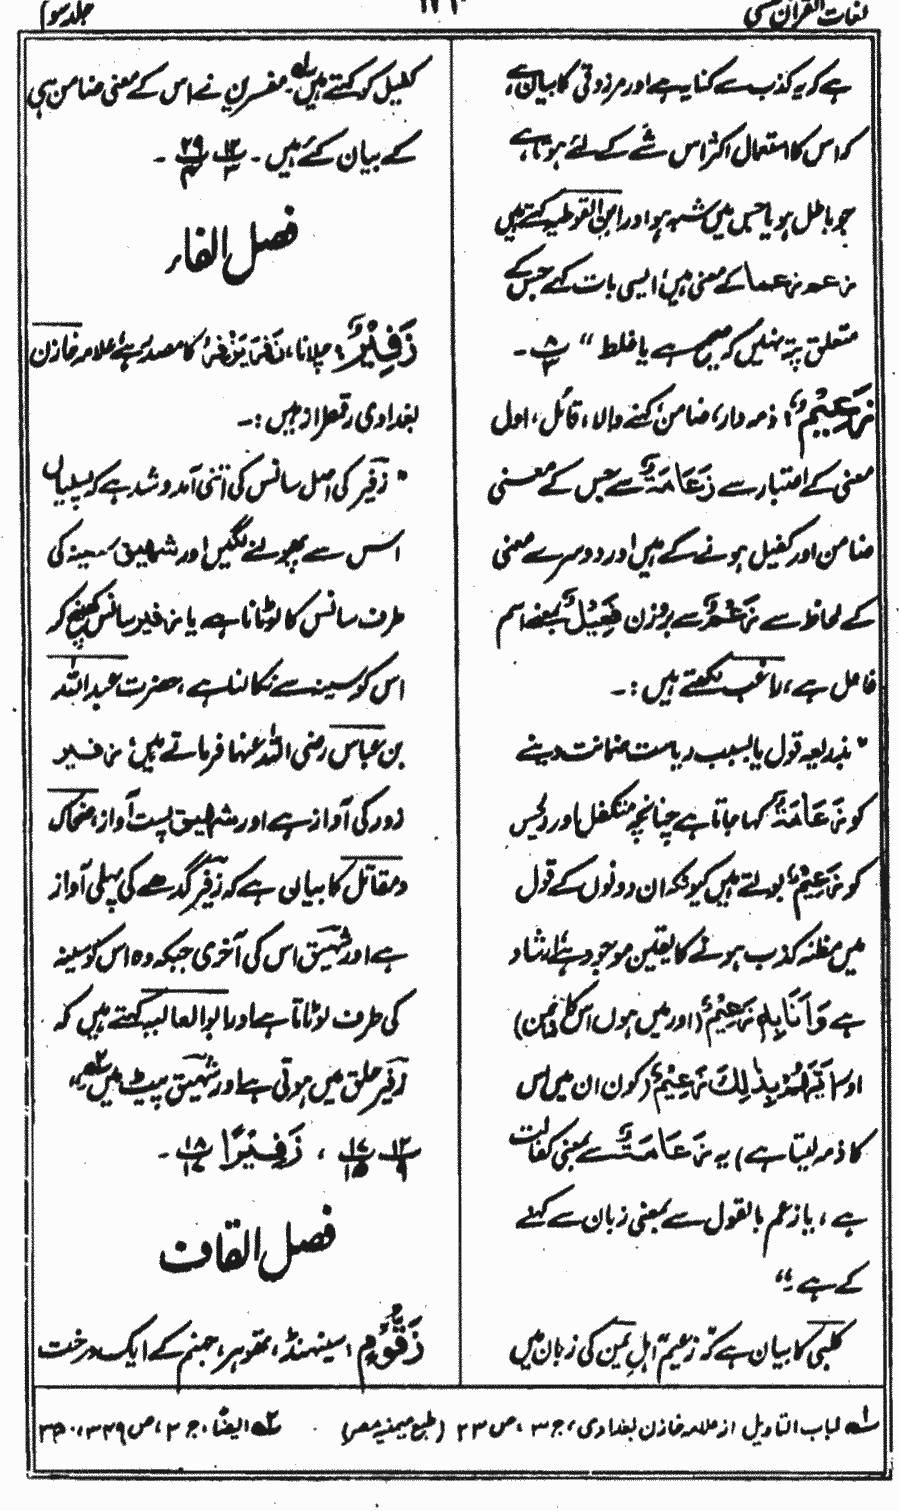 لغات القرآن
جلد سوم
ہے کہ یہ کذب سے کنایہ ہے اور مرزوقی کا بیان ہے،
کہ اس کا استعمال اکثر اس شے کے لئے ہوتا ہے،
جو باطل ہو یا جس میں شبہ ہو اور ابن القوطیہ کہتے ہیں
زعم زعما کے معنی ہیں، ایسی بات کہے جس کے
متعلق پتہ نہیں کہ صحیح ہے یا غلط“ ۸/۳ -
زَعِیْمٌ؛ ذمہ دار، ضامن، کہنے والا، قائل، اول
معنی کے اعتبار سے زَعَامَۃٌ سے جس کے معنی
ضامن اور کفیل ہونے کے ہیں، اور دوسرے معنی
کے لحاظ سے زَعْمٌ سے بروزن فَعِیْلٌ بمعنے اسم
فاعل ہے، راغب لکھتے ہیں :-
”بذریعہ قول یا بسبب ریاست ضمانت دینے
کو زَعَامَۃٌ کہا جاتا ہے چنانچہ متکفل اور رئیس
کو زَعِیْمٌ بولتے ہیں کیونکہ ان دونوں کے قول
میں مظنہ کذب ہونے کا یقین موجود ہے، ارشاد
ہے وَاَنَا بِہٖ زَعِیْمٌ (اور میں ہوں اس کا ضامن)
اور اَیُّہُمْ بِذٰلِکَ زَعِیْمٌ (کون ان میں اس
کا ذمہ لیتا ہے) یہ زَعَامَۃٌ سے بمعنی کفالت
ہے، یا زعم بالقول سے بمعنی زبان سے کہنے
کے ہے۔“
کلبی کا بیان ہے کہ زعیم اہل یمن کی زبان میں
کفیل کو کہتے ہیں۔ مفسرین نے اس کے معنی ضامن ہی
کے بیان کئے ہیں - ۱۳/۳ ۲۹/۴ -
فصل الفاء
زَفِیْرٌ؛ چلانا، زَفَرَ یَزْفِرُ کا مصدر ہے، علامہ خازن
بغدادی رقمطراز ہیں :-
”زفیر کی اصل سانس کی اتنی آمد و شد ہے کہ پسلیاں
اس سے پھولنے لگیں اور شہیق سینہ کی
طرف سانس کا لوٹانا ہے یا زفیر سانس کھینچ کر
اس کو سینہ سے نکالنا ہے، حضرت عبد اللہ
بن عباس رضی اللہ عنہما فرماتے ہیں، زفیر
زور کی آواز ہے اور شہیق پست آواز، ضحاک
و مقاتل کا بیان ہے کہ زفیر گدھے کی پہلی آواز
ہے اور شہیق اس کی آخری جبکہ وہ اس کو سینہ
کی طرف لوٹاتا ہے اور ابو العالیہ کہتے ہیں کہ
زفیر حلق میں ہوتی ہے اور شہیق پیٹ میں“
۱۲/۹ ۱۷/۱۵، زَفِیْرًا ۱۸/۱۷ -
فصل القاف
زَقُّوْمٌ؛ سینہنڈ، تھوہر، جہنم کے ایک درخت
۱؎ لباب التاویل از علامہ خازن بغدادی، ج ۳، ص ۲۳ (طبع میمنیہ مصر)
۲؎ ایضاً، ج ۲، ص ۳۳۹،